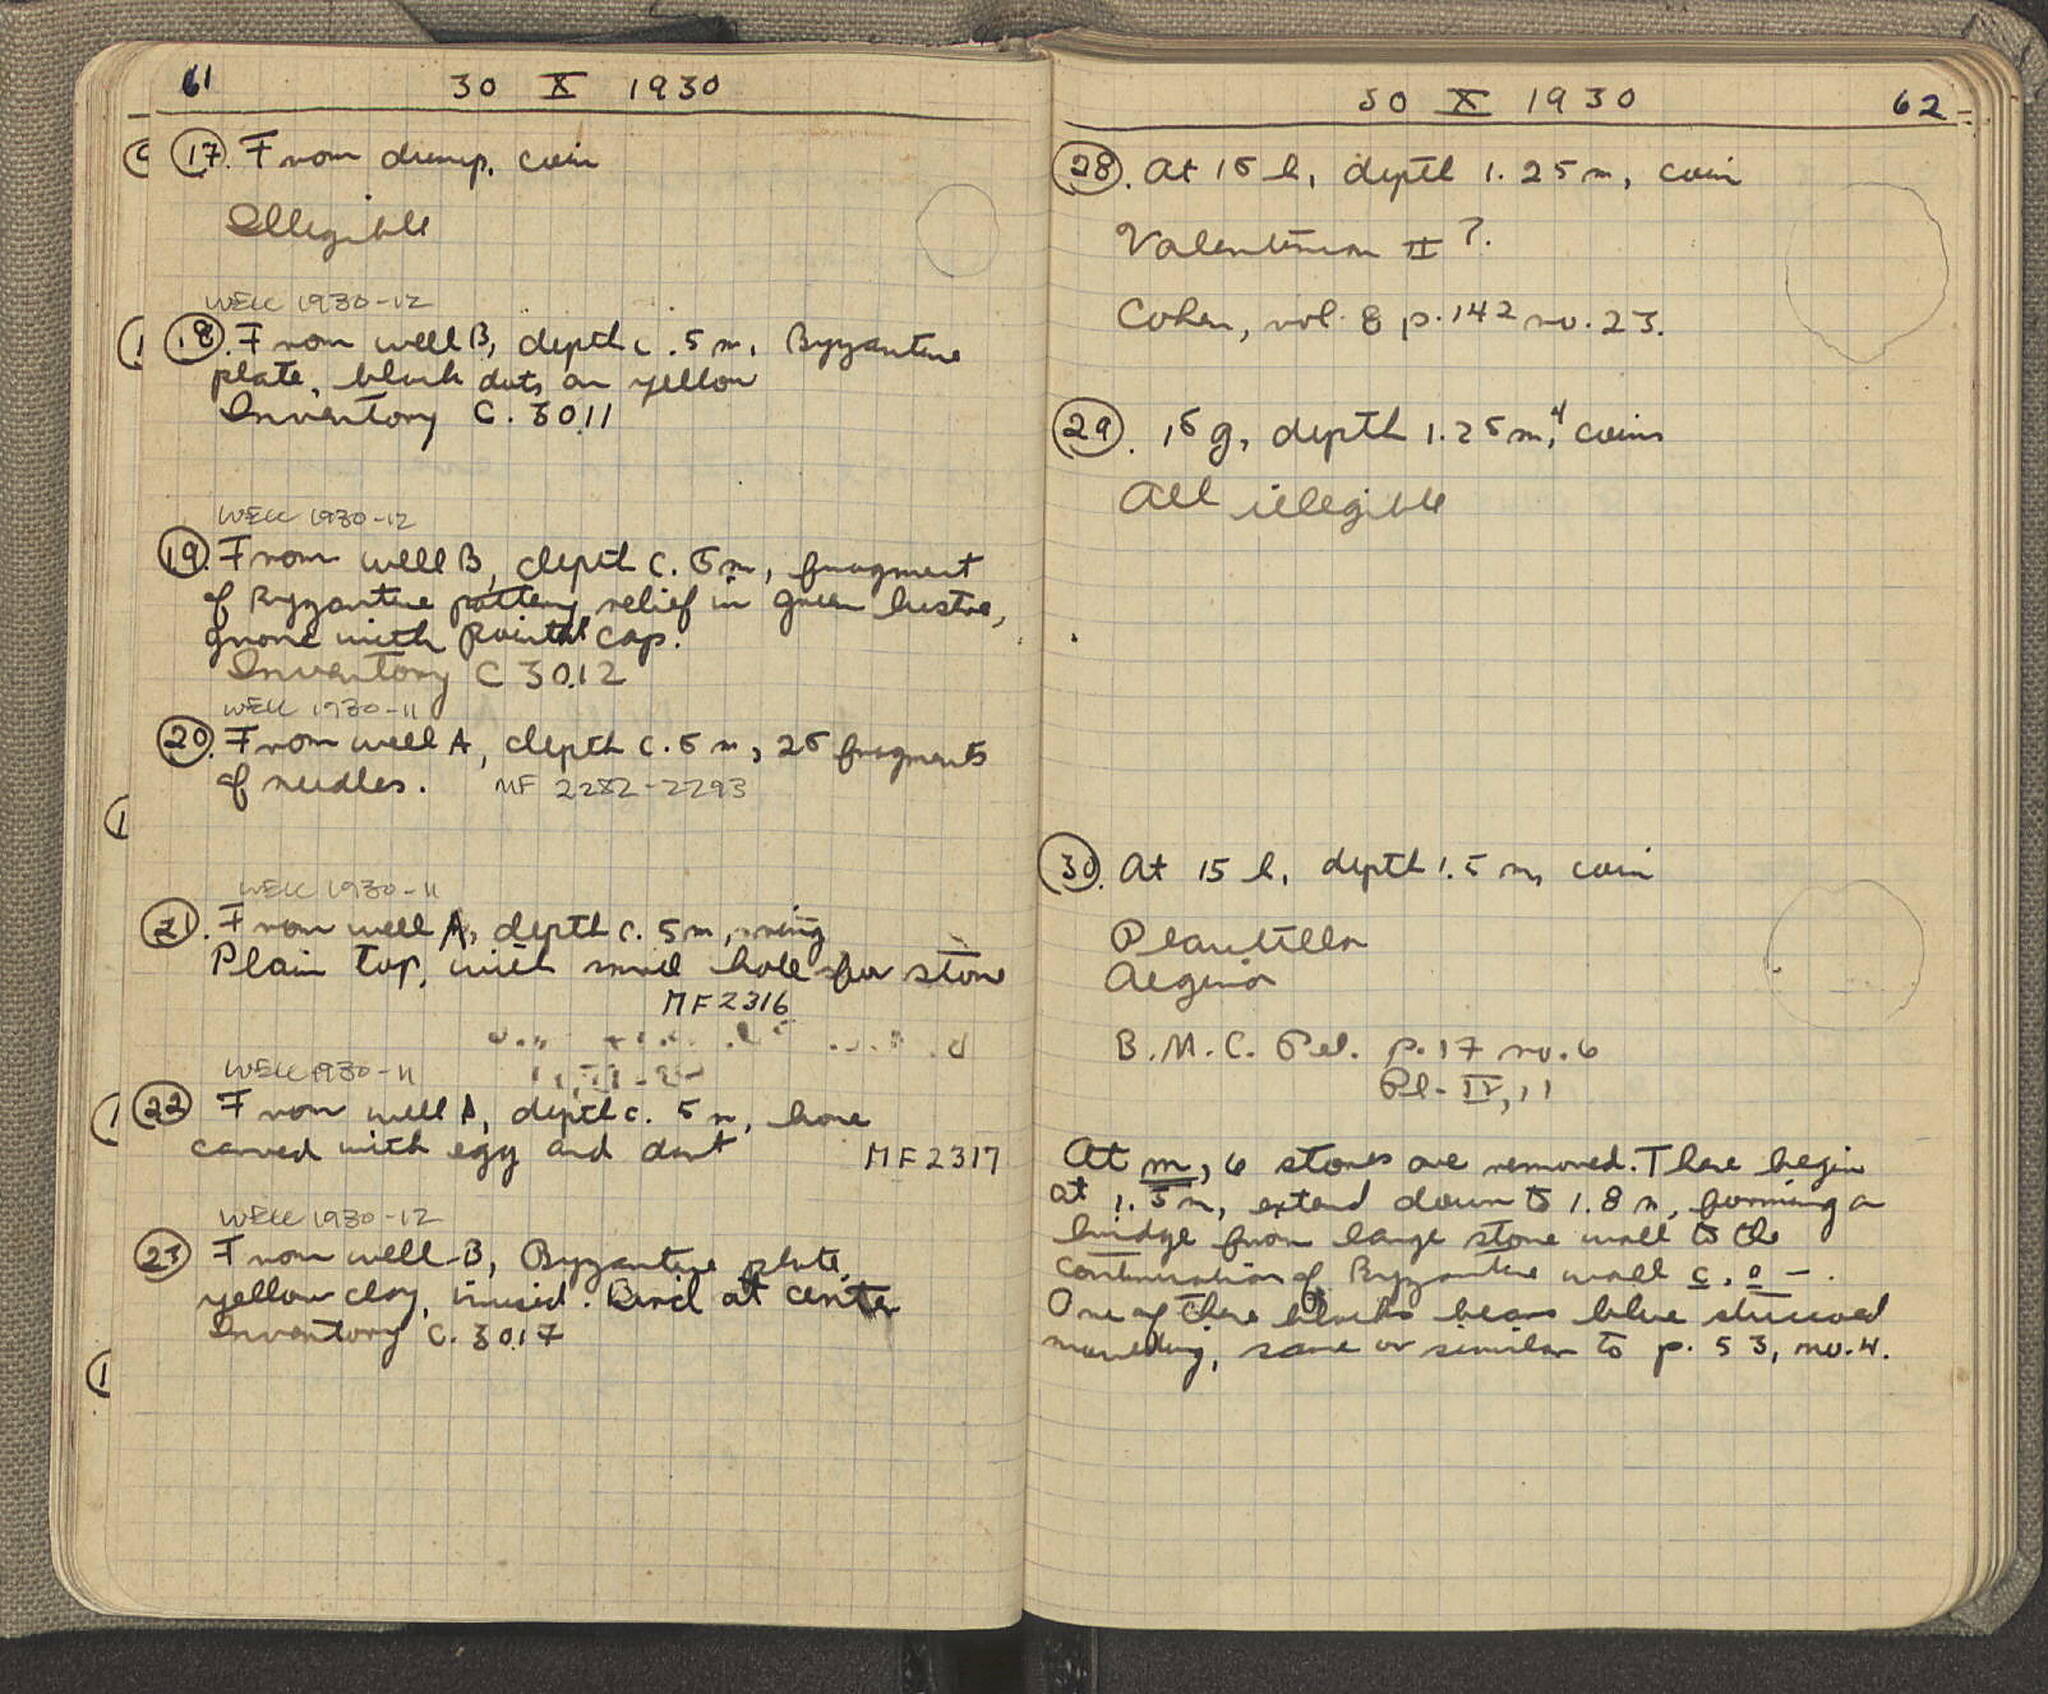 61
30 X 1930
(17). From dump, coin
Illegible
WELL 1930-12
(18). From well B, depth c. 5 m, Byzantine
plate, black dots on yellow
Inventory C. 30.11
WELL 1930-12
(19). From well B, depth c. 5 m, fragment
of Byzantine pottery, relief in green lustre,
gnome with pointed cap.
Inventory C 30.12
WELL 1930-11
(20). From well A, depth c. 5 m, 25 fragments
of needles. MF 2282-2293
WELL 1930-11
(21). From well A, depth c. 5 m, ring
Plain top, with small hole for stone
MF 2316
WELL 1930-11
(22) From well A, depth c. 5 m, bone
carved with egg and dart MF 2317
WELL 1930-12
(23) From well B, Byzantine plate,
yellow clay, incised. Bird at center
Inventory C. 30.17
30 X 1930
62
(28). At 15 h, depth 1.25 m, coin
Valentinian II ?.
Cohen, vol. 8 p. 142 no. 23.
(29). 15 g, depth 1.25 m, 4 coins
All illegible
(30). At 15 h, depth 1.5 m, coin
Plautilla
Aegina
B.M.C. Pel. p. 17 no. 6
Pl- IV, 11
At m, 6 stones are removed. These begin
at 1.5 m, extend down to 1.8 m, forming a
bridge from large stone wall to the
continuation of Byzantine wall c. o -.
One of these blocks bears blue stuccoed
moulding, same or similar to p. 53, no. 4.